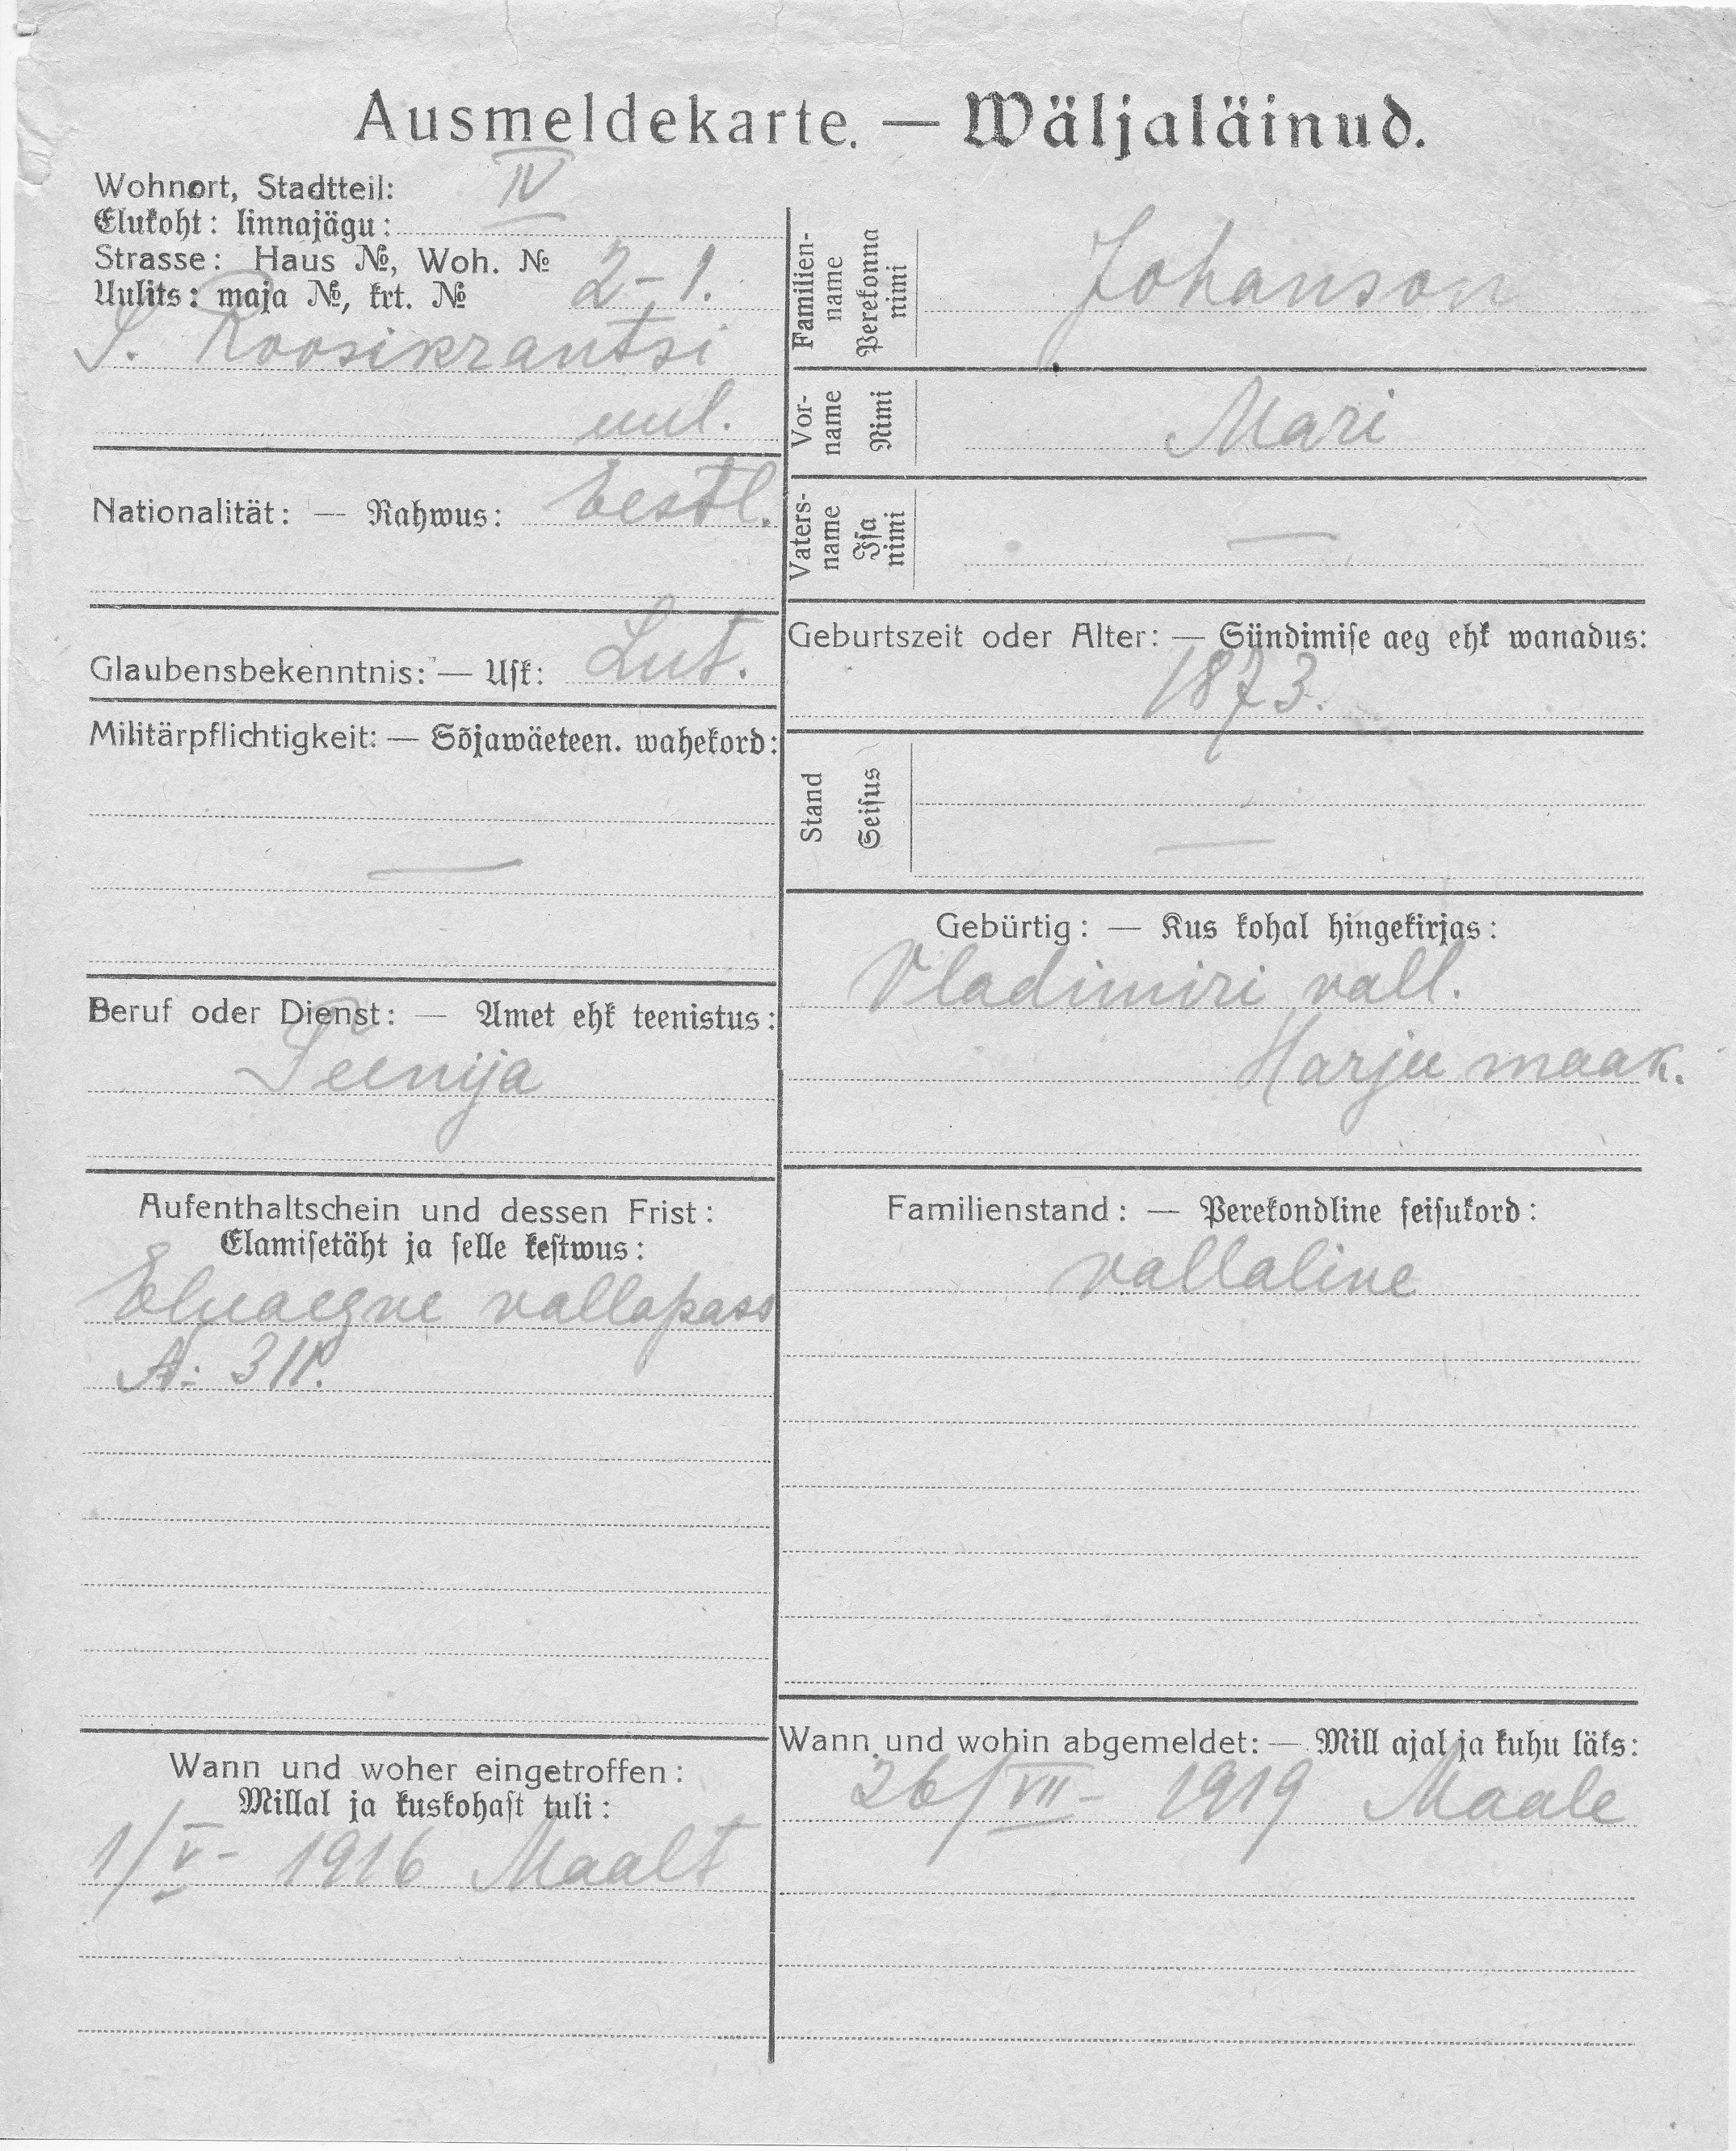 Ausmeldekarte. — Wäljaläinud.
Wohnort, Stadtteil: IV
Elukoht: linnajägu:
Strasse: Haus №, Woh. №
Uulits: maja №, krt. № 2-1.
S. Roosikrantsi
uul.
Nationalität: — Rahwus: Eestl.
Glaubensbekenntnis: — Usk: Lut.
Militärpflichtigkeit: — Sõjawäeteen. wahekord:
—
Beruf oder Dienst: — Amet ehk teenistus:
Teenija
Aufenthaltschein und dessen Frist:
Elamisetäht ja selle kestwus:
Eluaegne vallapass
A: 311.
Wann und woher eingetroffen:
Millal ja kuskohast tuli:
1/V- 1916 Maalt
Familien-
name
Perekonna
nimi
Johanson
Vor-
name
Nimi
Mari
Vaters-
name
Isa
nimi
—
Geburtszeit oder Alter: — Sündimise aeg ehk wanadus:
1873.
Stand
Seisus
—
Gebürtig: — Kus kohal hingekirjas:
Vladimiri vall.
Harju maak.
Familienstand: — Perekondline seisukord:
vallaline
Wann und wohin abgemeldet: — Mill ajal ja kuhu läks:
26/VII- 1919 Maale